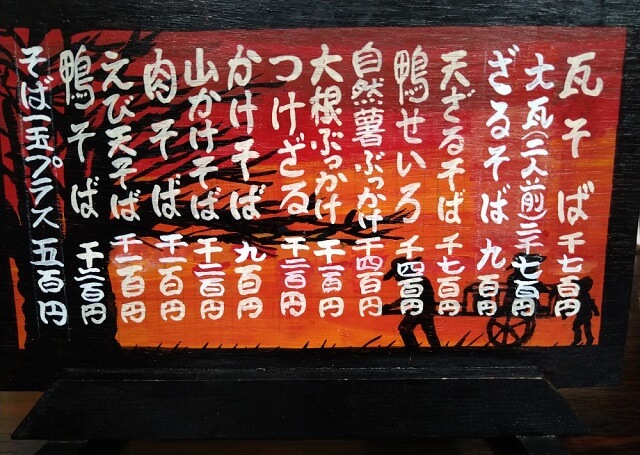 瓦そば 千七百円
大瓦(二人前)三千七百円
ざるそば 九百円
天ざるそば 千七百円
鴨せいろ 千四百円
自然薯ぶっかけ 千四百円
大根ぶっかけ 千二百円
つけざる 千二百円
かけそば 九百円
山かけそば 千二百円
肉そば 千二百円
えび天そば 千二百円
鴨そば 千三百円
そば一玉プラス 五百円